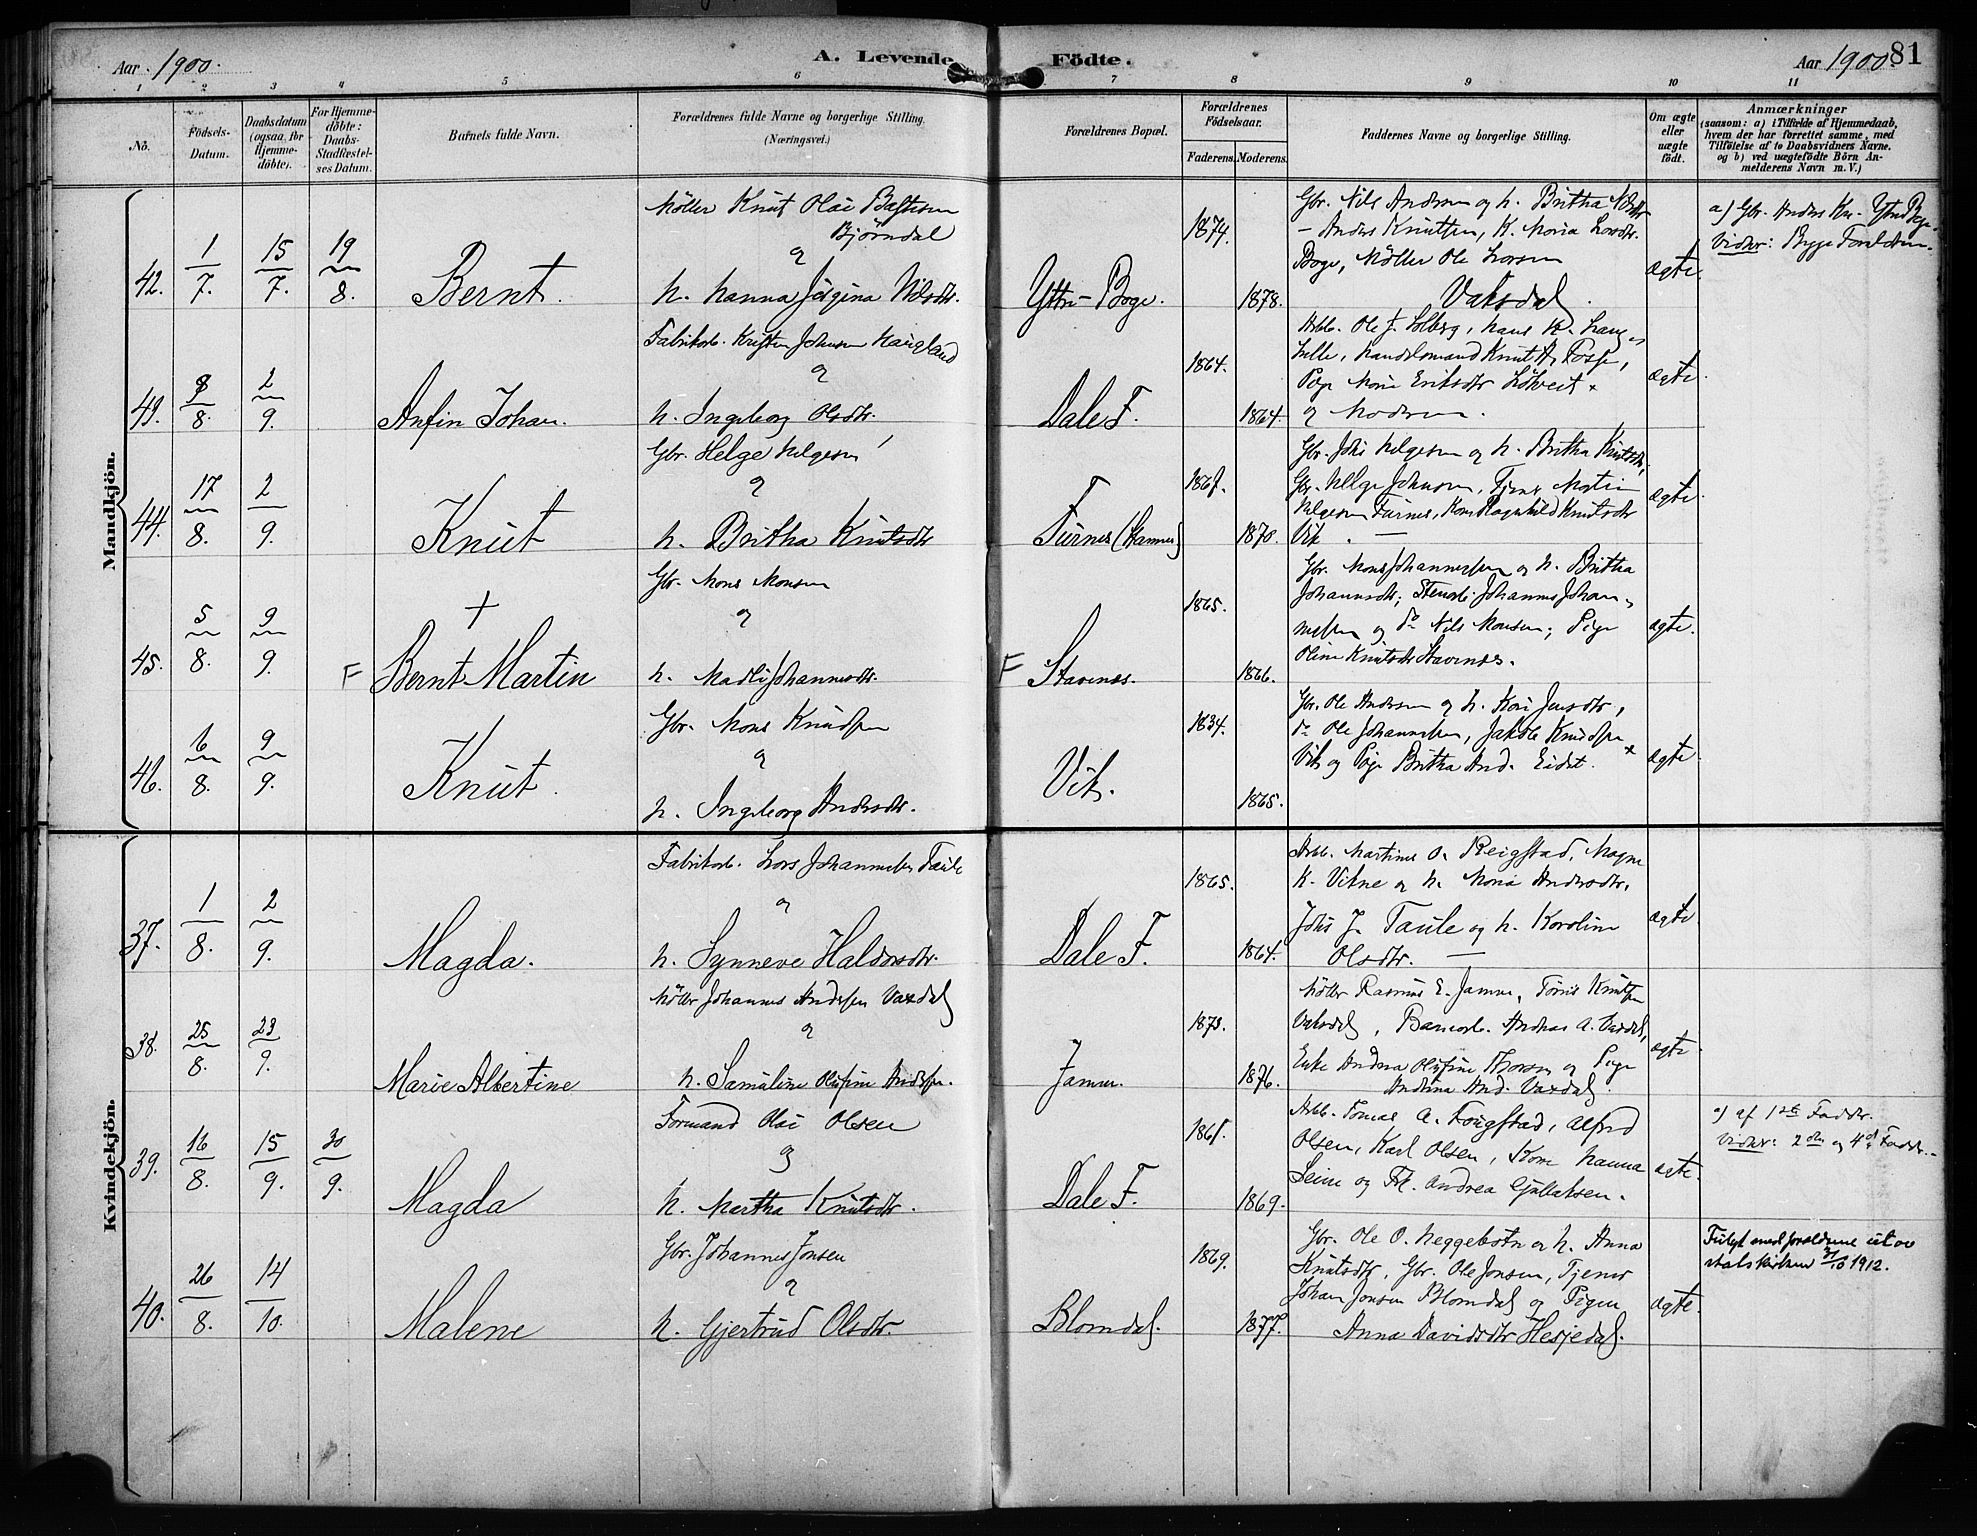 Aar 1900.
A. Levende Födte.
Aar 1900.
81
1 2 3 4 5 6 7 8 9 10 11
No.
Födsels-Datum.
Daabsdatum (ogsaa for Hjemme-döbte).
For Hjemme-döbte: Daabs-Stadfæstel-ses Datum.
Barnets fulde Navn.
Forældrenes fulde Navne og borgerlige Stilling. (Næringsvei.)
Forældrenes Bopæl.
Forældrenes Födselsaar.
Faderens. Moderens.
Faddernes Navne og borgerlige Stilling.
Om ægte eller uægte födt.
Anmærkninger
(saasom: a) i Tilfælde af Hjemmedaab,
hvem der har forrettet samme, med
Tilföielse af to Daabsvidners Navne.
og b) ved uægtefödte Börn An-
melderens Navn m. V.)
Mandkjön.
42. 1/7. 15/7. 19/8. Bernt.
Möller Knut Olai
Björndal
og
h. Hanna Nilsdtr.
Ytre-Boge.
1874.
1878.
Gbr. Nils Andersen og h. Britha Nilsdtr
- Anders Knutsen, K. Maria Larsdtr.
Boge, Möller Ole Larsen
Vaksdal.
ægte.
a) Gbr. Anders Ytre Boge.
Vidner: Begge Forældrene.
43. 8. 2/9. Anfin Johan.
Fabrikarb. Kristen Johnsen
og
h. Ingeborg Olsdtr.
Dale F.
1864.
1864.
Arb. Ole J. Solberg, Hans K.
Handelsmand Knut A. Fosse,
Pige Marie Eriksdtr
og Moderen.
ægte
44. 17/8. 2/9. Knut
Gbr. Helge Helgesen
og
h. Britha Knutsdtr
Furnes (Hammer)
1870.
Gbr. Johs Helgesen og h. Britha Knutsdtr,
Gbr. Helge Johnsen, Tjener Martin
Helgesen Furnes, Kone Ragnhild Knutsdtr
Vik. —
ægte.
45. 5/8. 9/9. F Bernt Martin +
Gbr. Mons Monsen
og
h. Madli Johannesdtr.
F Stavenes.
1865.
1866.
Gbr. Mons Johannessen og h. Britha
Johannesdtr; Johannes Johan-
nessen og do Nils Monsen; Pige
Oline Knutsdtr Stavenes.
ægte.
46. 6/8. 9/9. Knut.
Gbr. Mons Knudsen
og
h. Ingeborg Andersdtr.
Vik.
1834.
1865.
Gbr. Ole Andersen og h. Kari Jensdtr,
do Ole Johannessen, Jakob Knudsen
Vik og Pige Britha And. Eidet.
ægte
Kvindekjön.
37. 1/8. 2/9. Magda.
Fabrikarb. Lars Johannessen Taule
og
h. Synneve Haldorsdtr.
Dale F.
1865.
1864.
Arb. Martinus O. Reigstad, Magne
K. Vikne og h. Maria Andersdtr.
Johs J. Taule og h. Karoline
Olsdtr. —
ægte
38. 25/8. 23/9. Marie Albertine
Möller Johannes Andersen Vaxdal
og
h. Samuline Olufine Andersen.
Jamne.
1873.
1876.
Möller Rasmus E. Jamne, Knutsen
Vaksdal, Andreas A. Vaxdal,
Enke Andrea Olufine Thorsen og Pige
Andrina And. Vaxdal.
ægte.
39. 16/8. 15/9. 30/9. Magda
Formand Olai Olsen
og
h. Martha Knutsdtr.
Dale F.
1869.
Arb. Tomas A. Alfred
Olsen, Karl Olsen, Kone Hanna
Leine og Frk. Andrea Gullaksen.
ægte.
a) af 1ste Fadder.
Vidner: 2den og 4de Fadder.
40. 26/8. 14/10. Malene
Gbr. Johannes Jonsen
og
h. Gjertrud Olsdtr.
Blomdal.
1869.
1877.
Gbr. Ole O. Heggebotn og h. Anna
Knutsdtr, Gbr. Ole Jonsen, Tjener
Johan Jonsen Blomdal og Pigen
Anna Davidsdtr Hesjedal.
ægte.
Fulgt med foreldrene ut av
statskirken 1912.